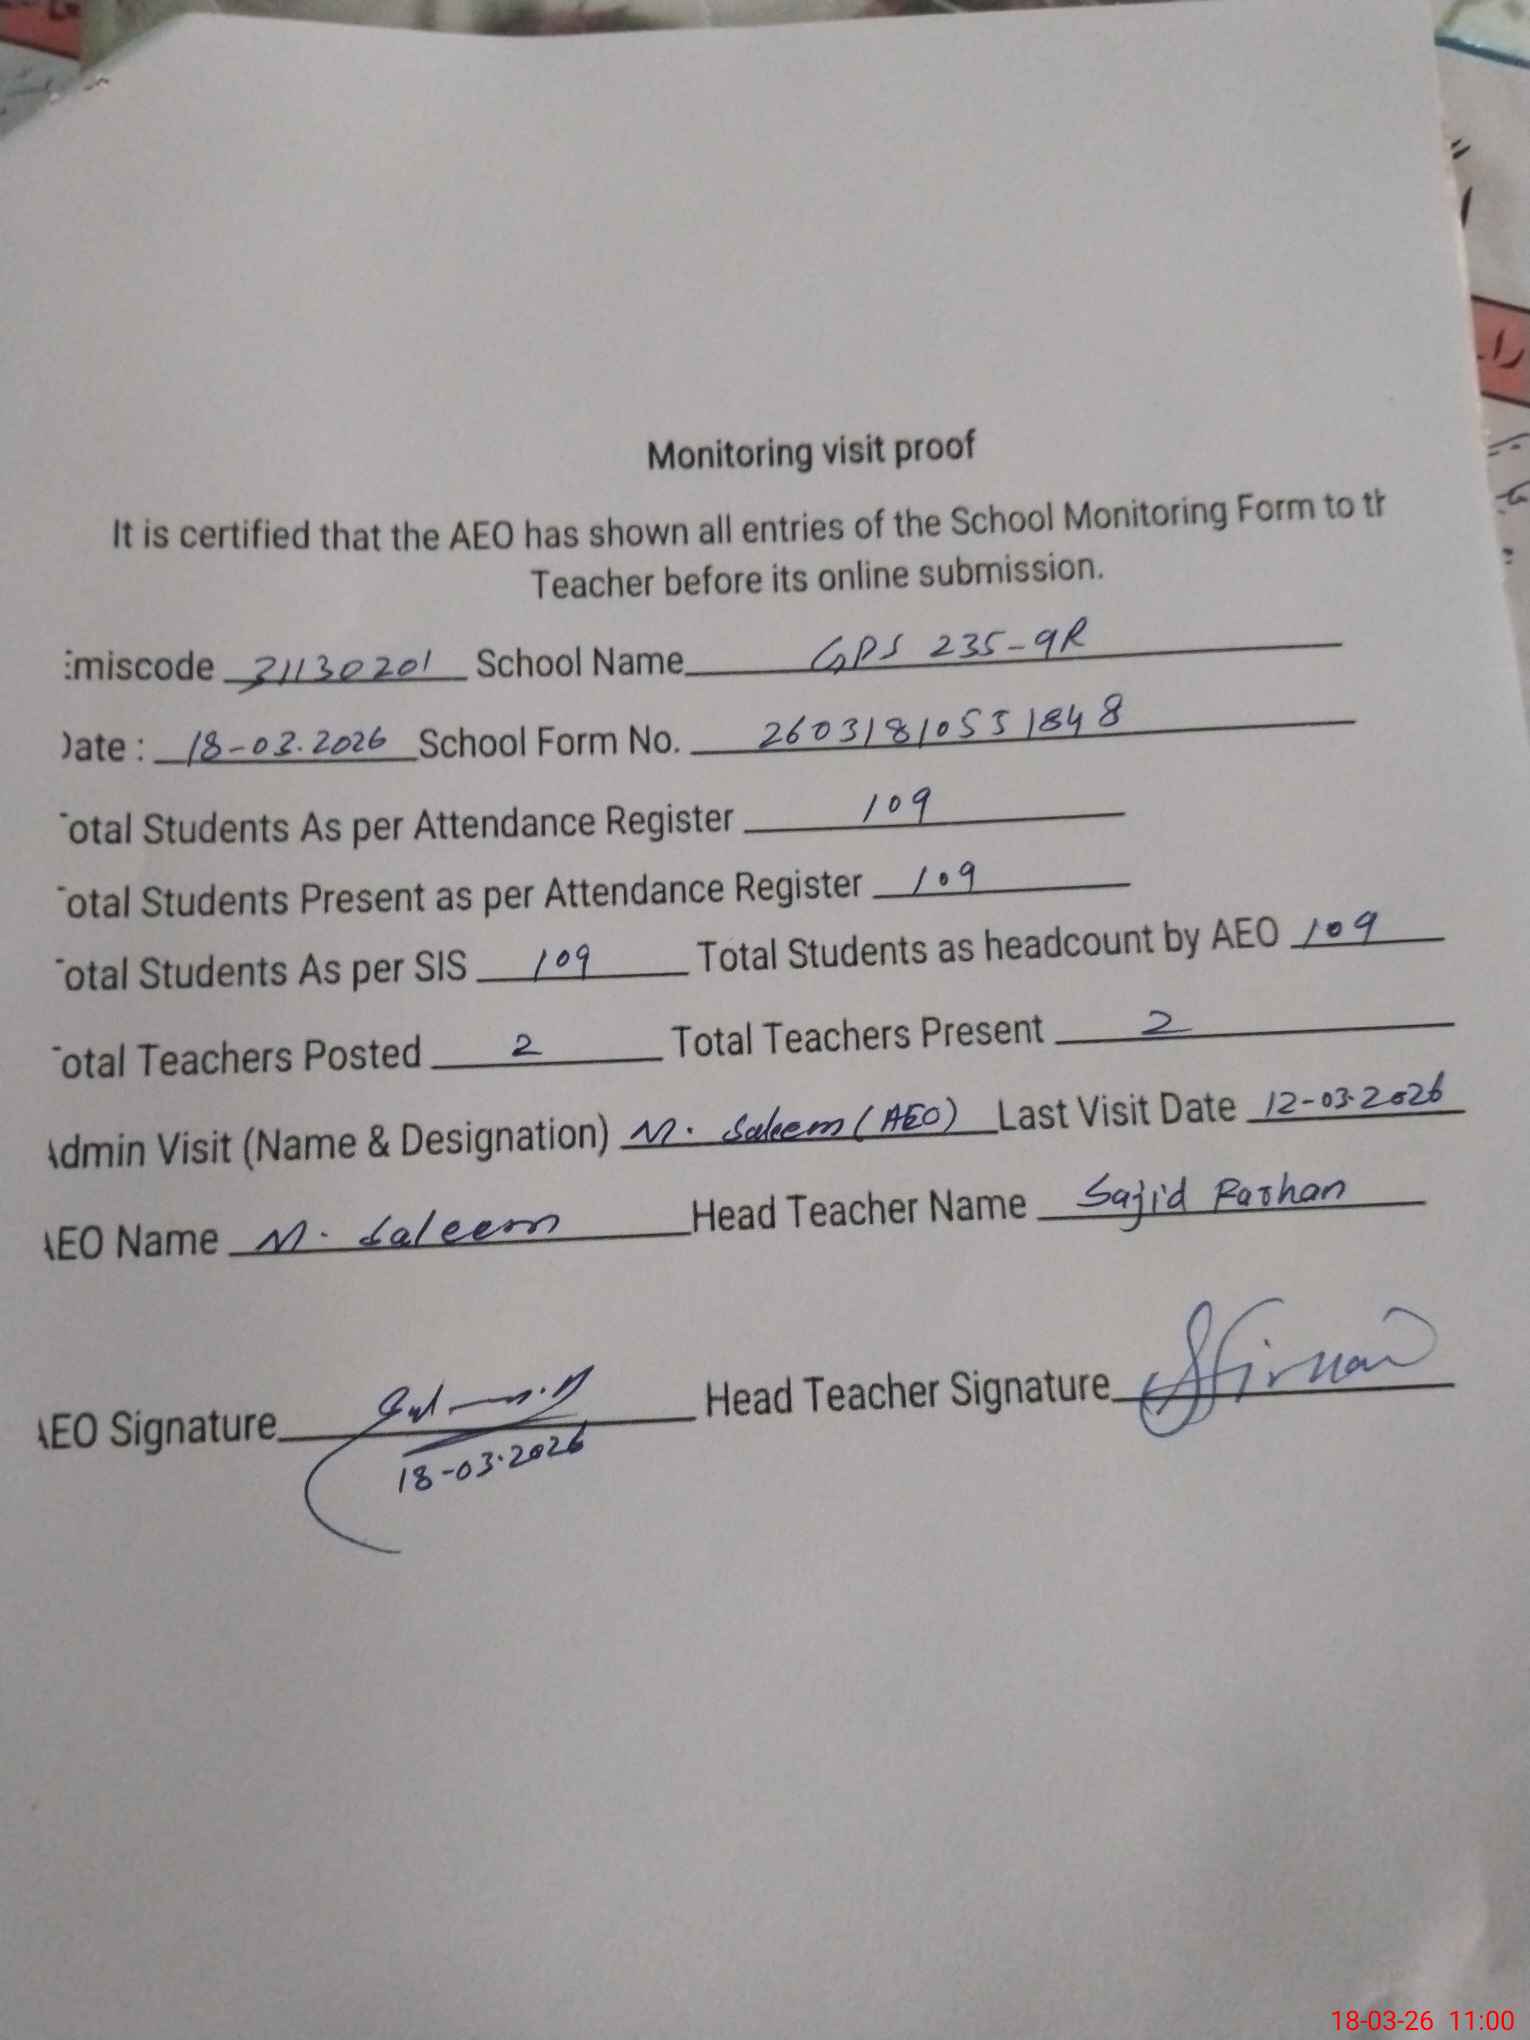 Monitoring visit proof
It is certified that the AEO has shown all entries of the School Monitoring Form to th
Teacher before its online submission.
Emiscode 31130201 School Name GPS 235-9R
Date : 18-03.2026 School Form No. 26031810551848
Total Students As per Attendance Register 109
Total Students Present as per Attendance Register 109
Total Students As per SIS 109 Total Students as headcount by AEO 109
Total Teachers Posted 2 Total Teachers Present 2
Admin Visit (Name & Designation) M. Saleem (AEO) Last Visit Date 12-03.2026
AEO Name M. Saleem Head Teacher Name Sajid
AEO Signature Head Teacher Signature
18-03.2026
18-03-26 11:00